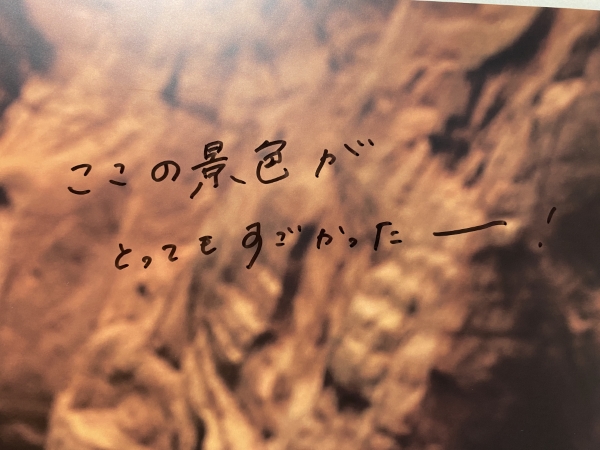 ここの景色が
とってもすごかったー!